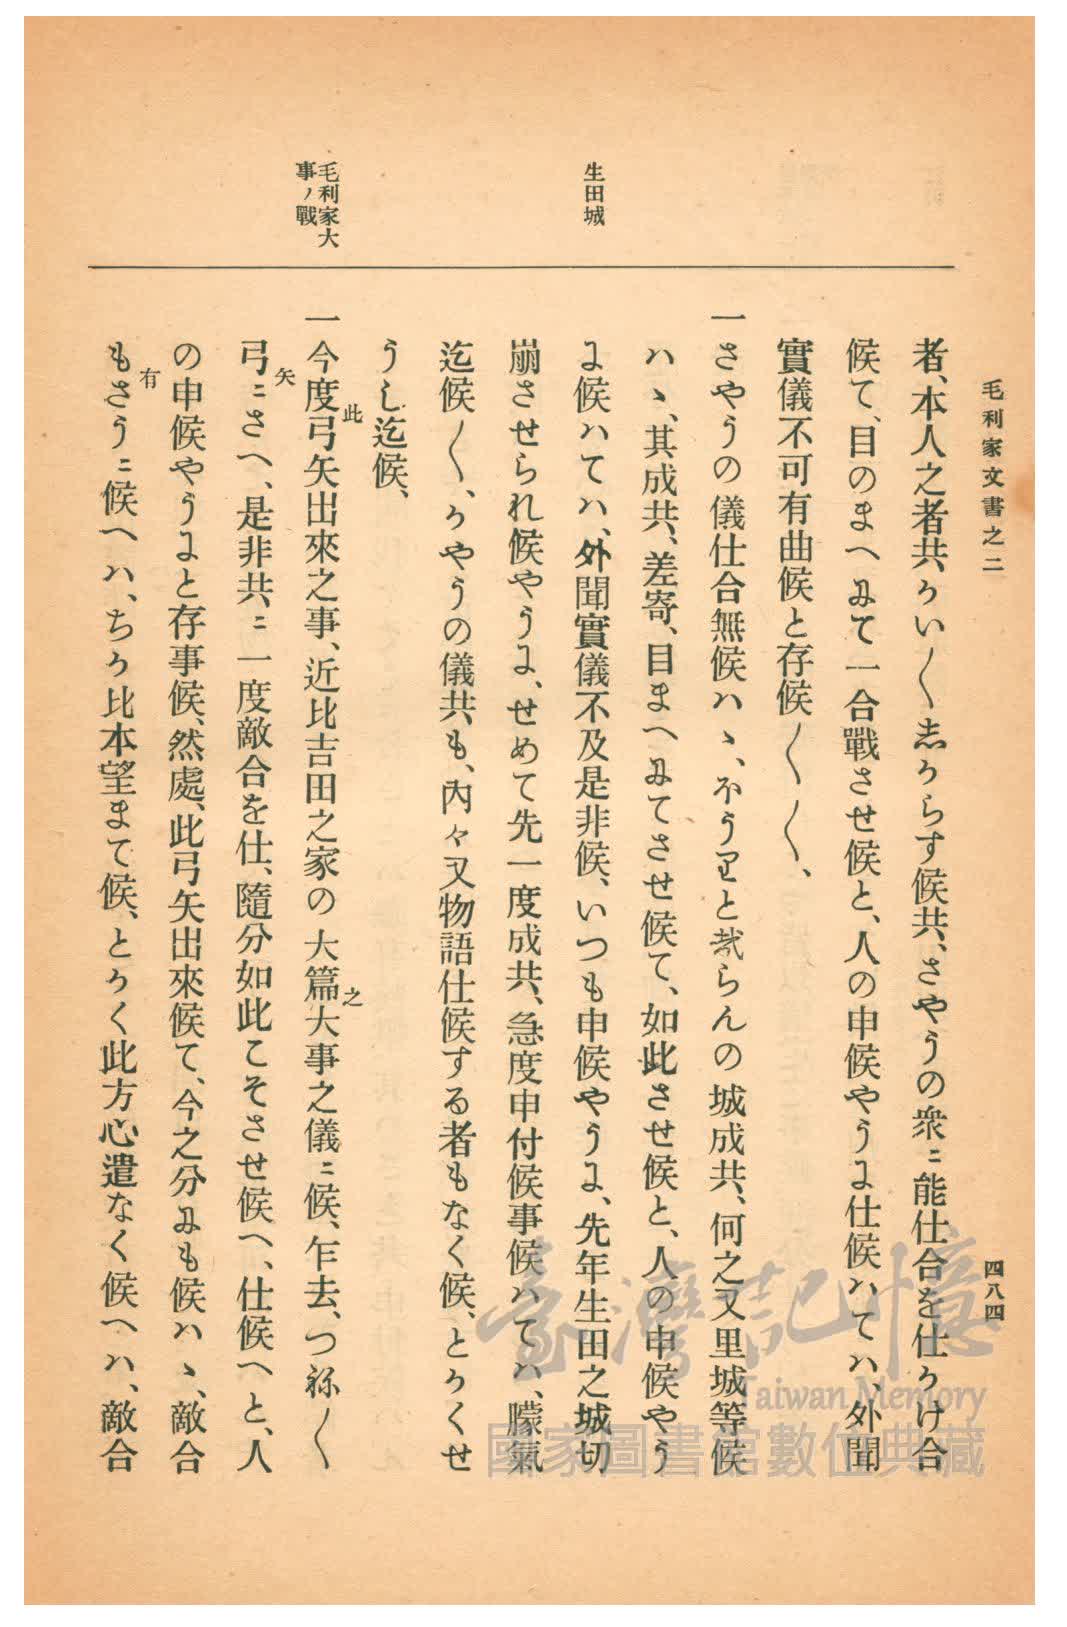 毛利家文書之二
四八四
者、本人之者共、かい〳〵志からす候共、さやうの衆ニ能仕合を仕かけ合
候て、目のまへにて一合戰させ候と、人の申候やうに仕候ハてハ、外聞
實儀不可有曲候と存候〳〵〳〵、
一さやうの儀仕合無候ハヽ、ほうりと哉らんの城成共、何之又里城等候
ハヽ、其成共、差寄、目まへにてさせ候て、如此させ候と、人の申候やう
に候ハてハ、外聞實儀不及是非候、いつも申候やうに、先年生田之城切
崩させられ候やうに、せめて先一度成共、急度申付候事候ハてハ、朦氣
迄候〳〵、かやうの儀共も、內々又物語仕候する者もなく候、とかくせ
うし迄候、
一今度弓矢出來之事、近比吉田之家の大篇大事之儀ニ候、乍去、つね〳〵
此
之
弓ニさへ、是非共ニ一度敵合を仕、隨分如此こそさせ候へ、仕候へと、人
矢
の申候やうにと存事候、然處、此弓矢出來候て、今之分にも候ハヽ、敵合
もさうニ候へハ、ちか比本望まて候、とかく此方心遣なく候へハ、敵合
有
生田城
毛利家大
事ノ戰
臺灣記憶
Taiwan Memory
國家圖書館數位典藏